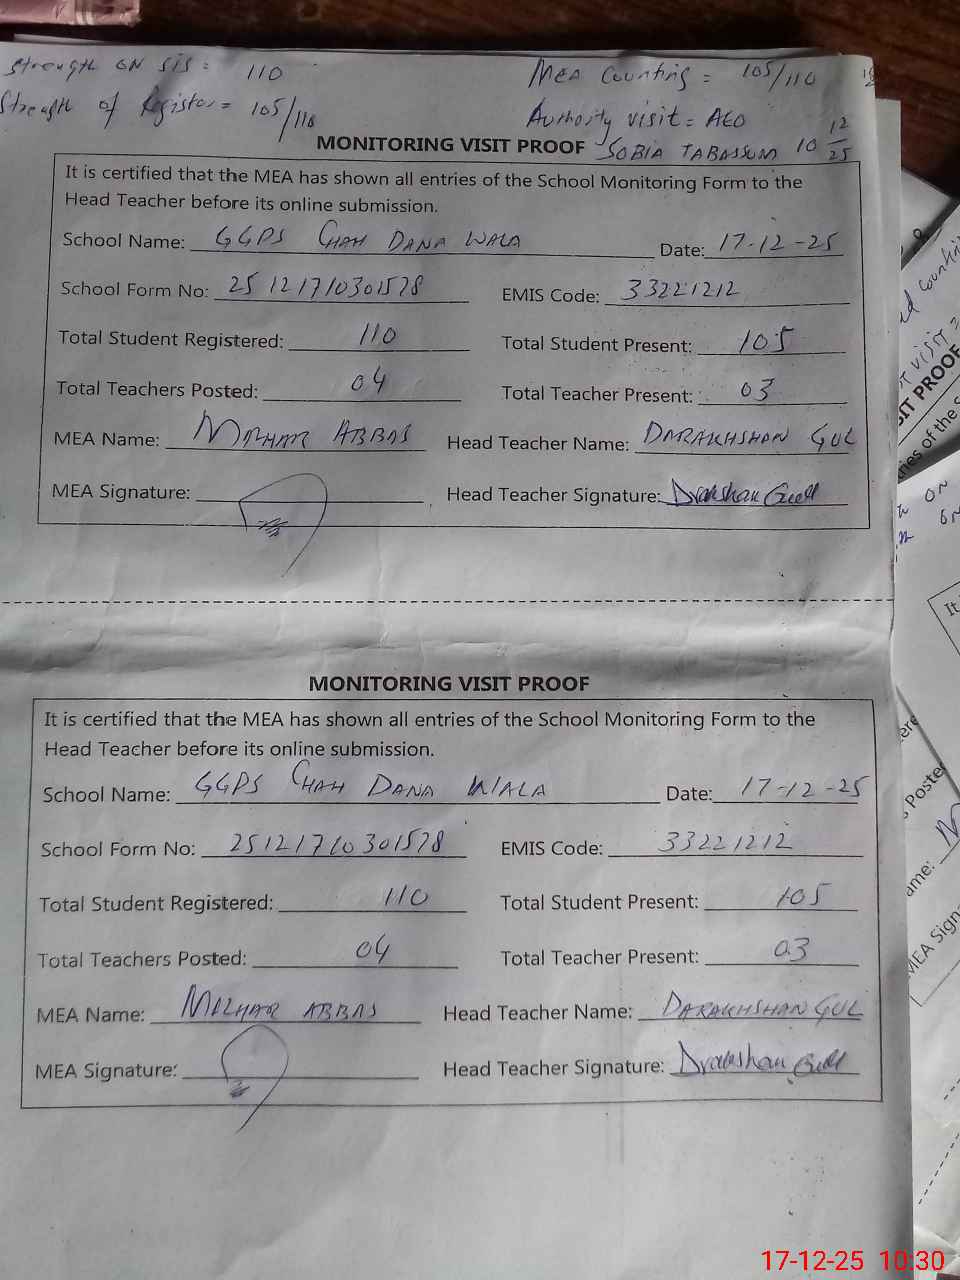 Strength on SIS = 110
MEA Counting = 105/110
Strength of Register = 105/110
Authority visit = AEO
SOBIA TABASSUM 10 12/25
MONITORING VISIT PROOF
It is certified that the MEA has shown all entries of the School Monitoring Form to the
Head Teacher before its online submission.
School Name: GGPS CHAH DANA WALA Date: 17-12-25
School Form No: 25121710301578 EMIS Code: 33221212
Total Student Registered: 110 Total Student Present: 105
Total Teachers Posted: 04 Total Teacher Present: 03
MEA Name: ABBAS Head Teacher Name: DARAKHSHAN GUL
MEA Signature: Head Teacher Signature:
MONITORING VISIT PROOF
It is certified that the MEA has shown all entries of the School Monitoring Form to the
Head Teacher before its online submission.
School Name: GGPS CHAH DANA WALA Date: 17-12-25
School Form No: 25121710301578 EMIS Code: 33221212
Total Student Registered: 110 Total Student Present: 105
Total Teachers Posted: 04 Total Teacher Present: 03
MEA Name: ABBAS Head Teacher Name: DARAKHSHAN GUL
MEA Signature: Head Teacher Signature:
17-12-25 10:30